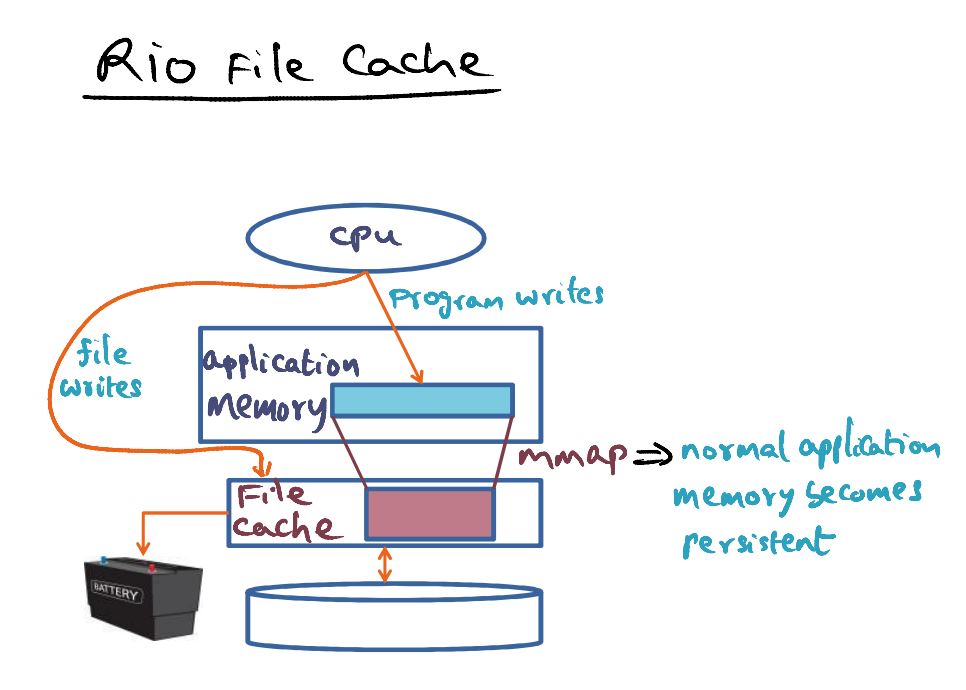 Rio File Cache
cpu
Program writes
file
writes
application
memory
mmap ⇒ normal application
memory becomes
persistent
File
cache
BATTERY